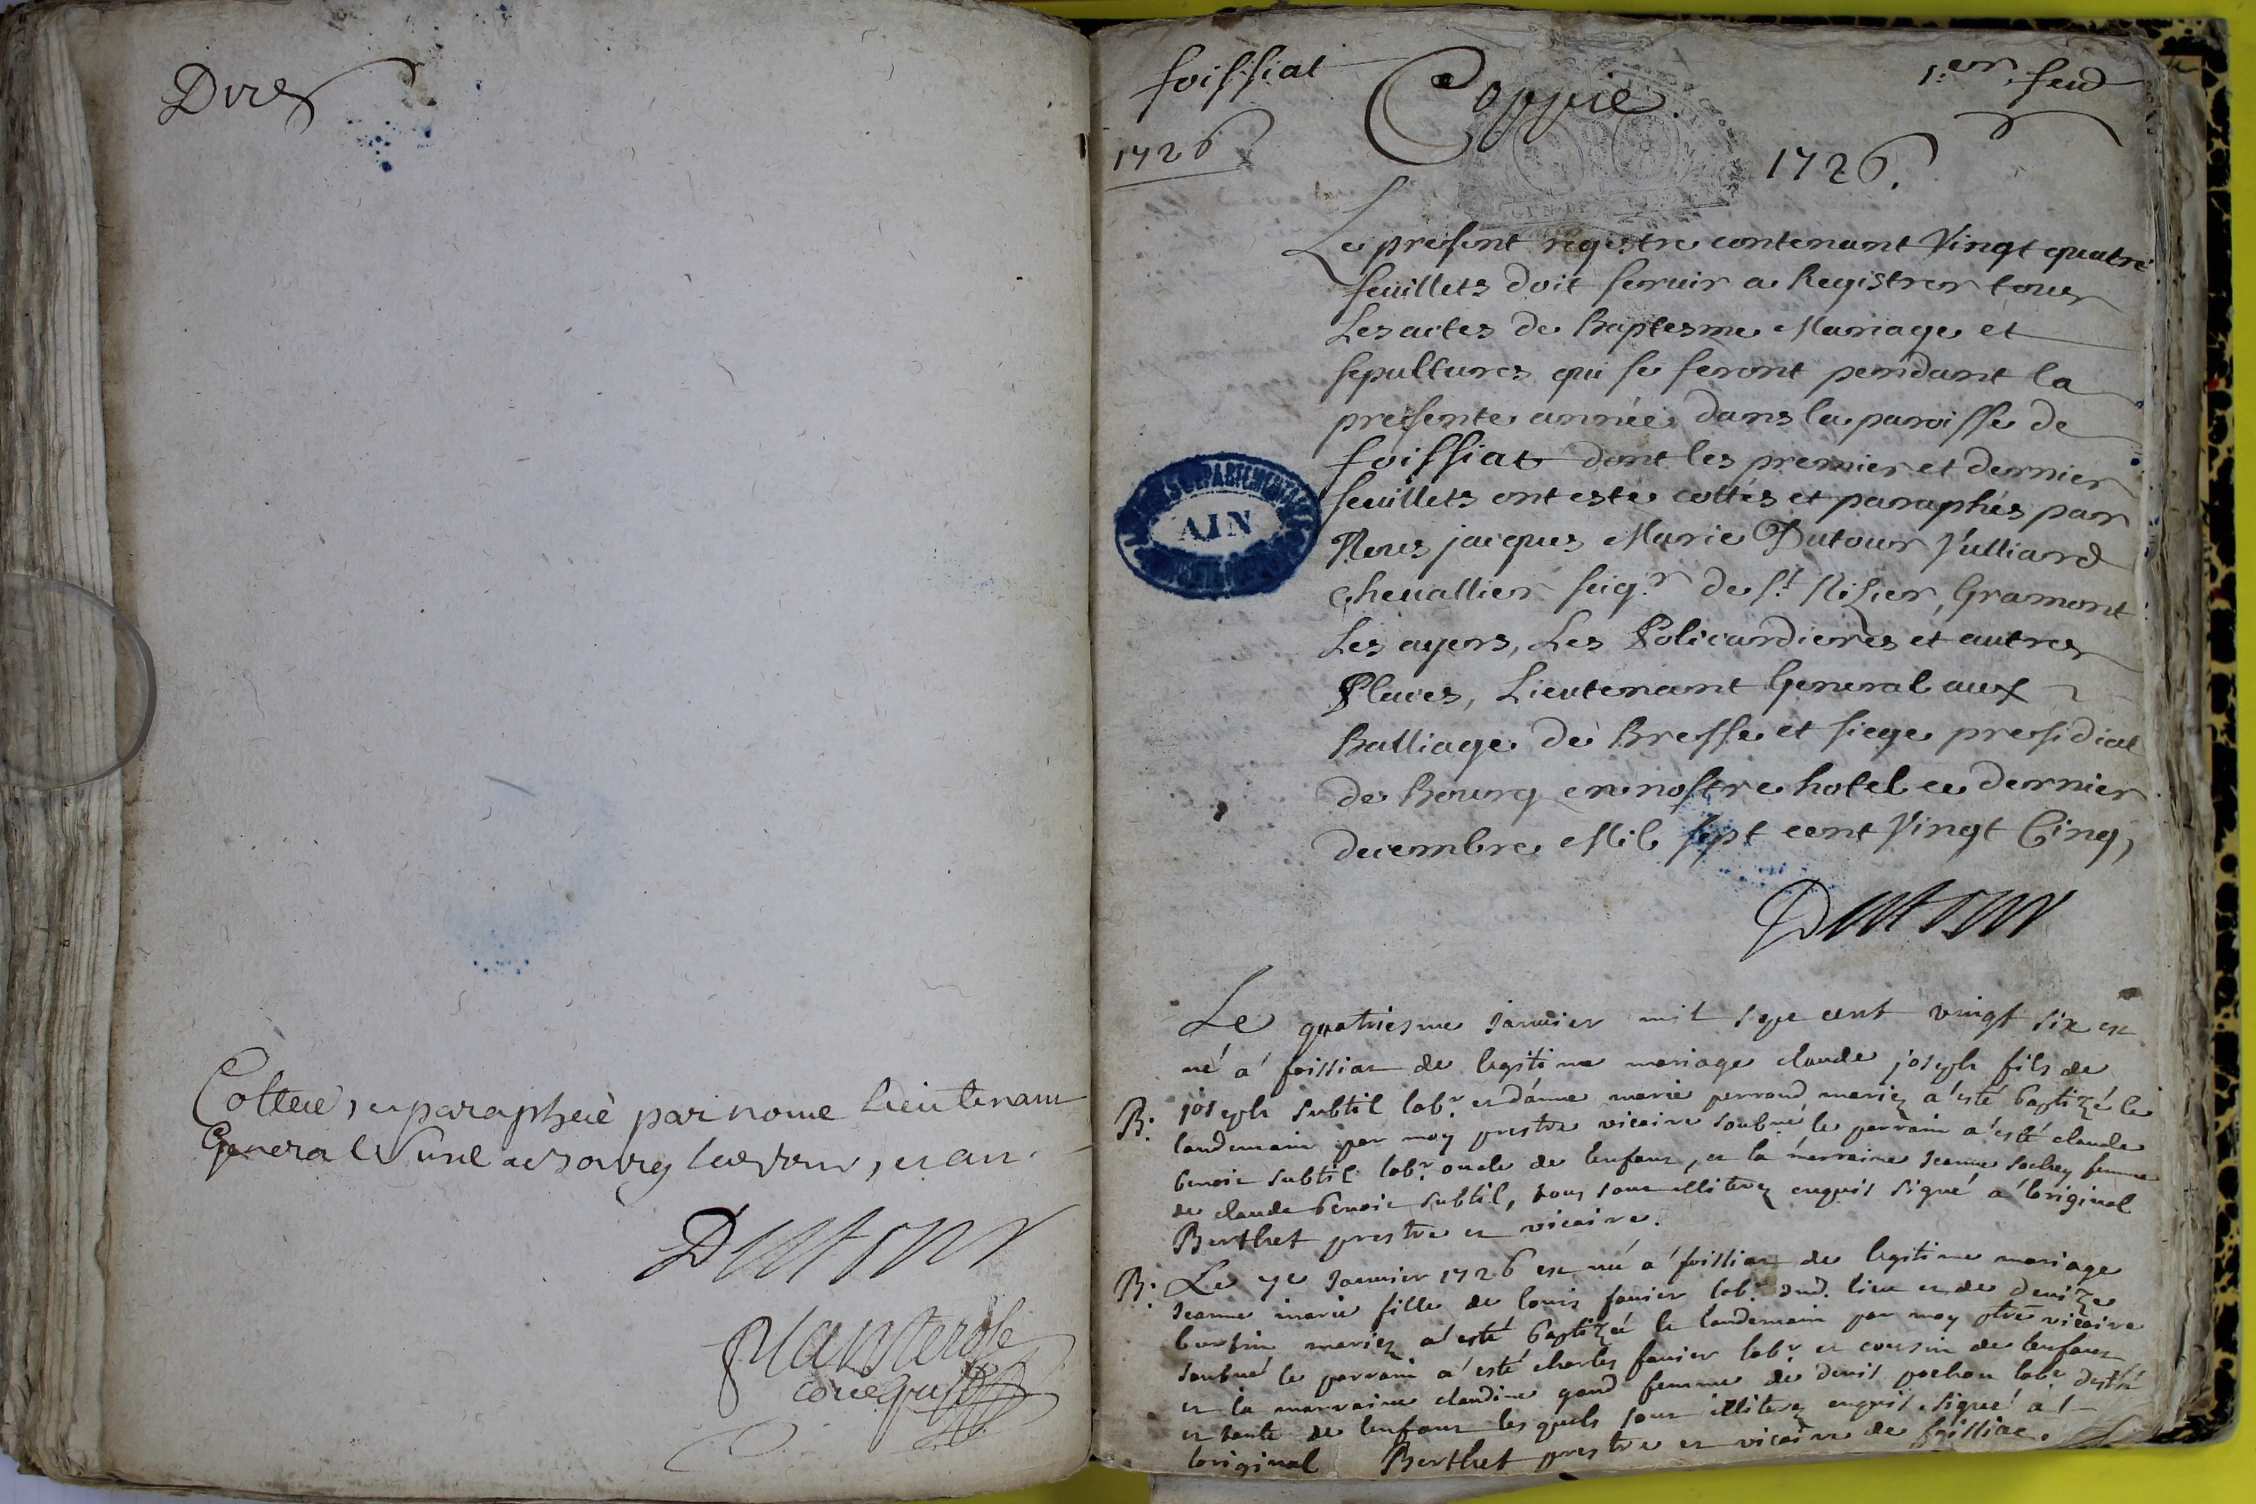 Cottée, et paraphée par nous Lieutenant
General de Bourg les jour, et an.
Dutour
foissiat
1726
Coppie.
1.er feud
1726.
Le present regestre contenant Vingt quatre
feuillets doit seruir a Registrer tous
Les actes de Baptesme Mariage et
sepultures qui se feront pendant la
presente année dans la paroisse de
foissiat dont les premier et dernier
feuillets ont esté cottés et paraphés par
Nous jacques Marie Dutour Vulliard
Cheuallier seig.r de S.t Nizier, Gramont
Les ayers, Les Policardieres et autres
Places, Lieutenant General aux
Balliage de Bresse et siege presidial
de Bourg en nostre hotel ce dernier
decembre Mil sept cent Vingt Cinq,
AIN
Dutour
Le quatriesme Januier mil sept cent vingt six est
né a foissiat de legitime mariage claude joseph fils de
B: joseph subtil lab.r et danne marie perraud mariez a esté baptizé le
landemain par moy prestre vicaire soubné le parrain a esté claude
benoit subtil lab.r oncle de lenfant, et la marraine Jeanne sochey femme
de claude benoit subtil, tous sont illiterez enquis signé a loriginal
Berthet prestre et vicaire.
B: Le 7e Januier 1726 est né a foissiat de legitime mariage
Jeanne marie fille de louis fauier lab.r dud. lieu et de denize
burtin mariez a esté baptizé le landemain par moy ptre vicaire
soubné le parrain a esté charles fauier lab.r et cousin de lenfant
et la marraine claudine gaud femme de denis pochon lab.r
et tante de lenfant les quels sont illiterez enquis. signé a l-
loriginal Berthet prestre et vicaire de foissiat.